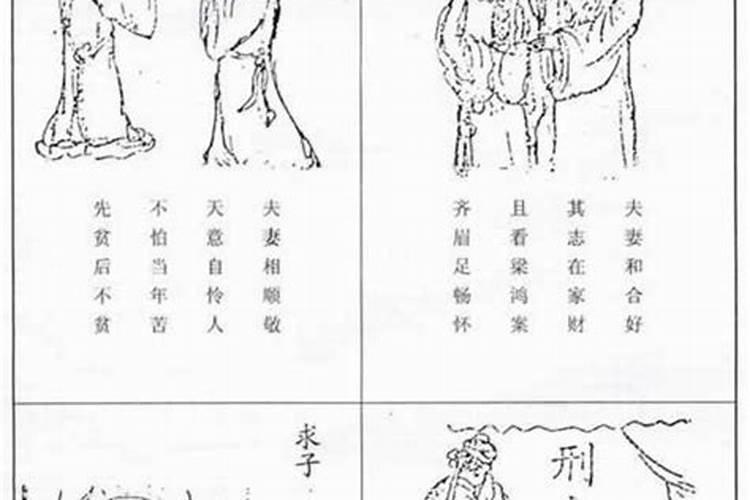 夫妻和合好
其志在家财
且看梁鸿案
齐眉足畅怀
夫妻相顺敬
天意自怜人
不怕当年苦
先贫后不贫
刑
求子